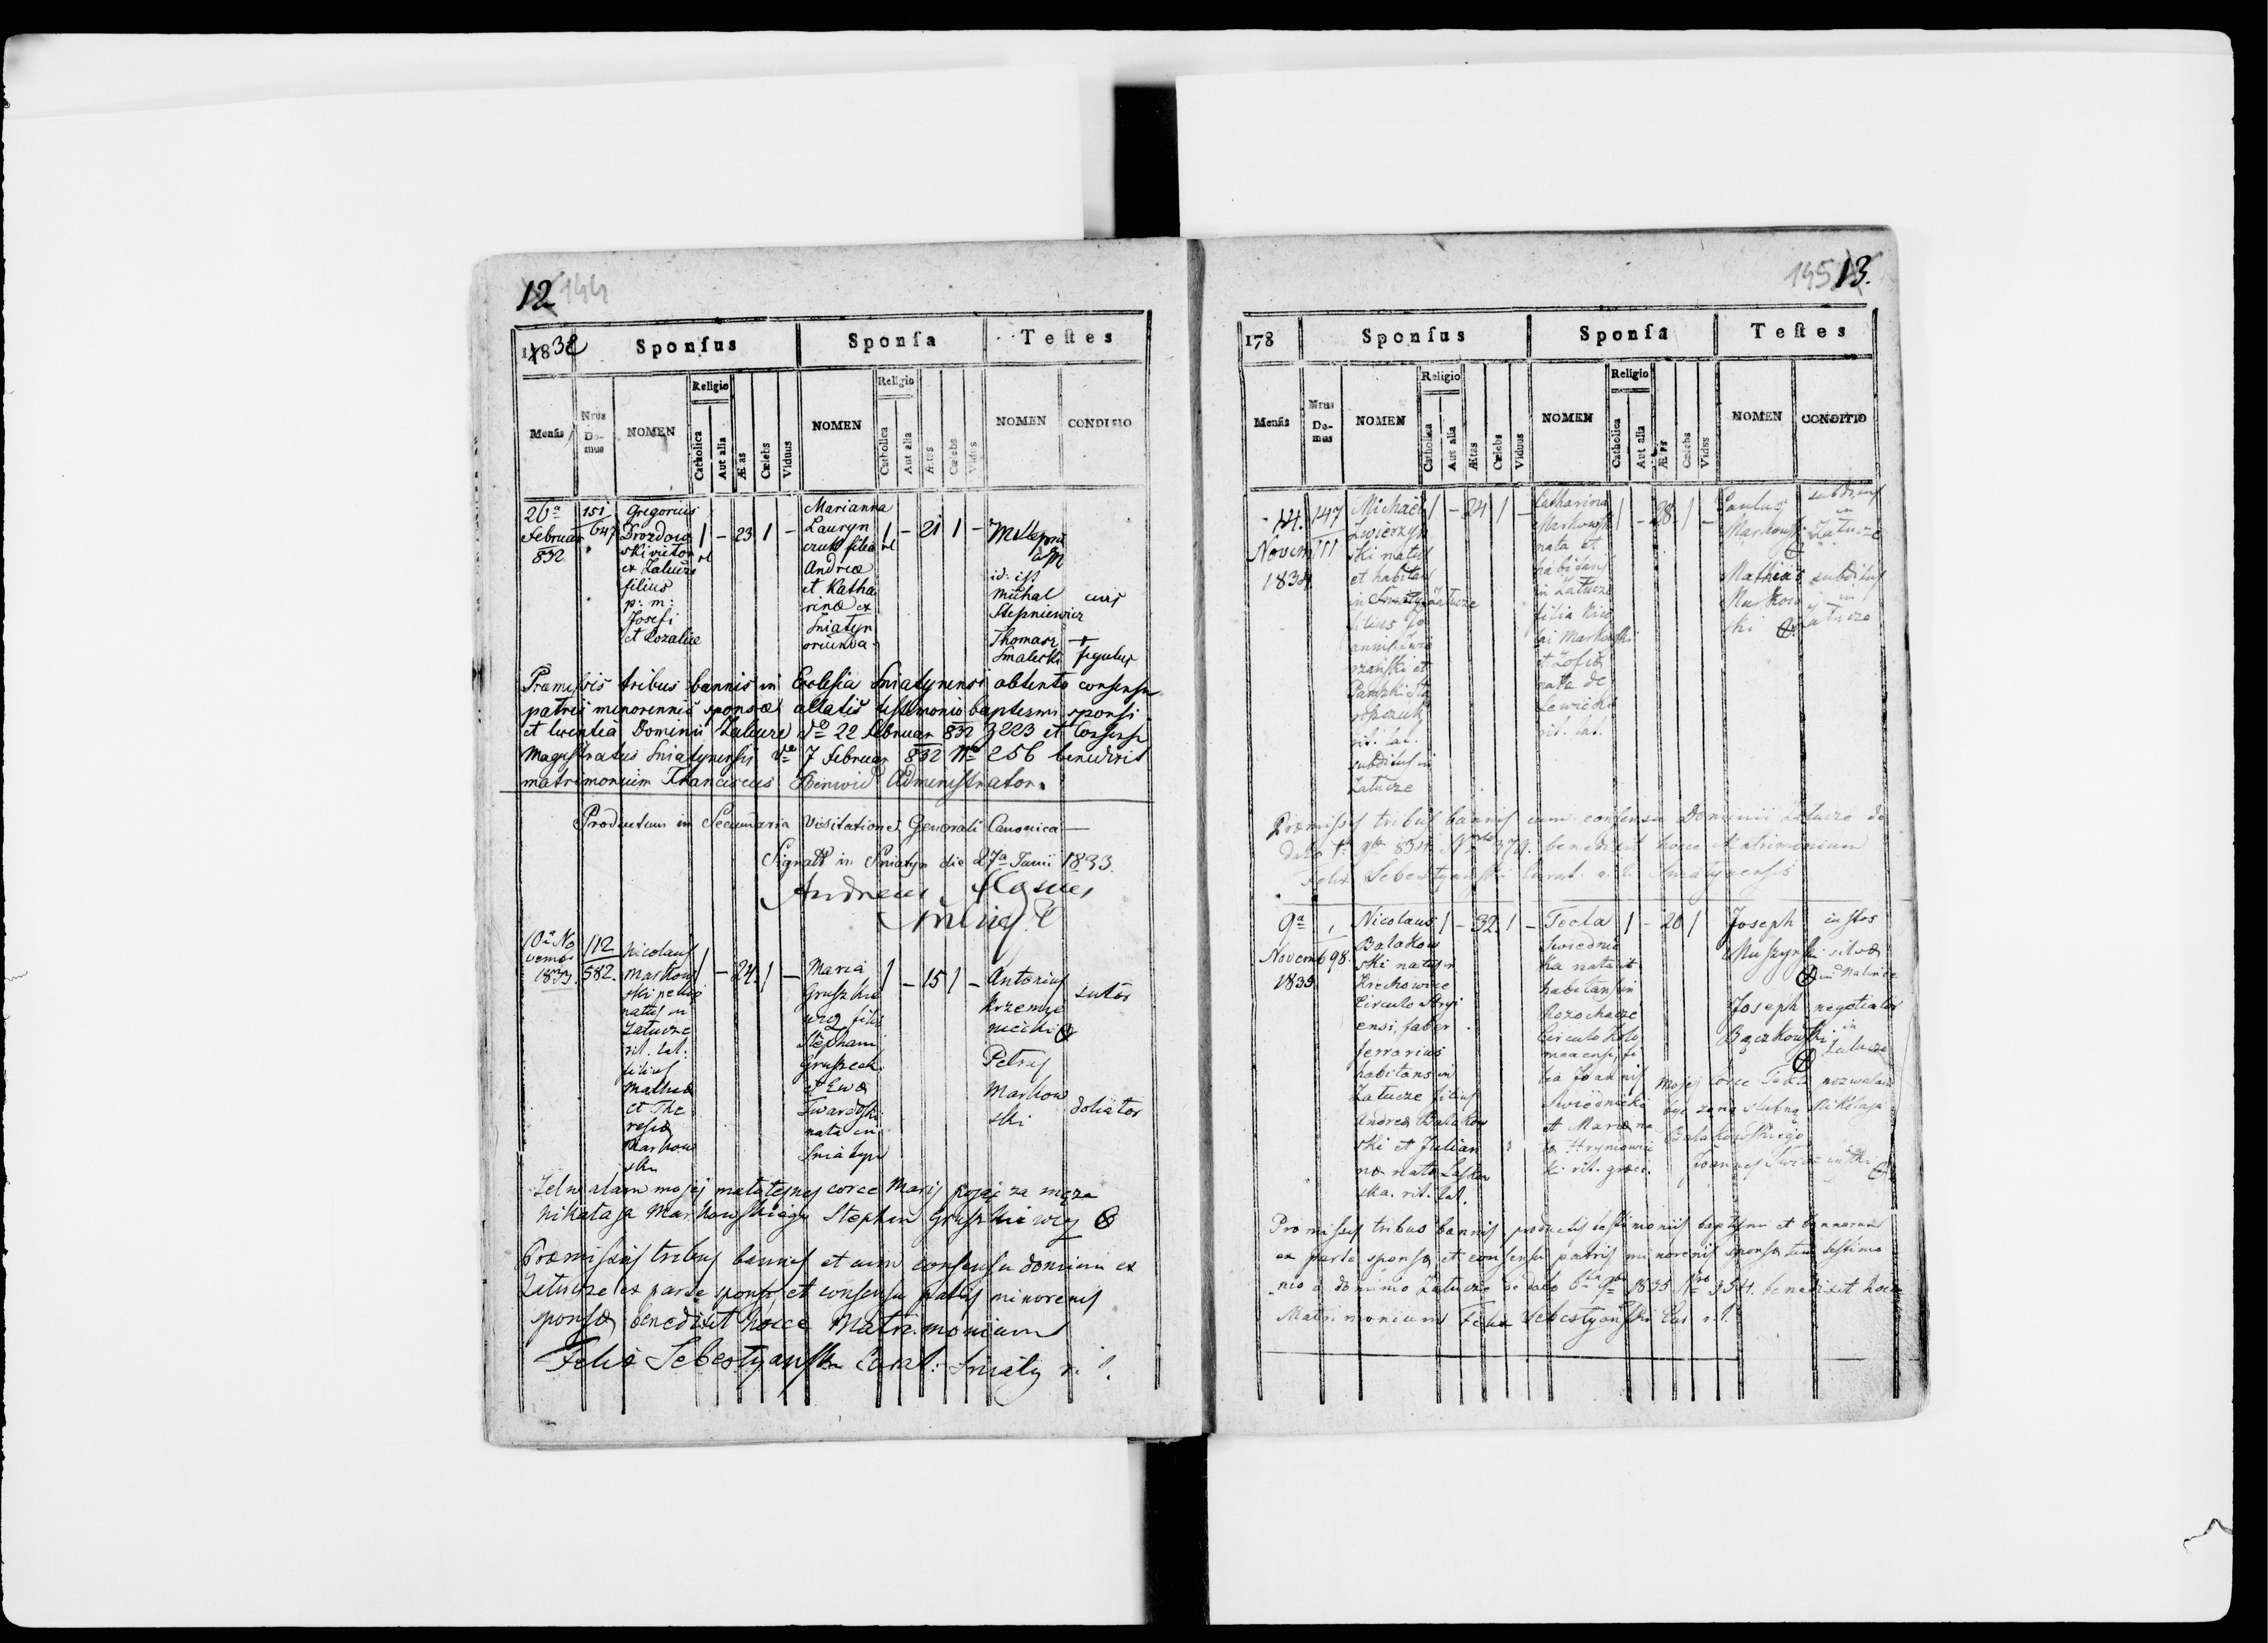 12 144
1832
Sponsus
Sponsa
Testes
Mensis
Nrus Do-mus
NOMEN
Religio
Catholica
Aut alia
Ætas
Cœlebs
Viduus
NOMEN
Religio
Catholica
Aut alia
Ætas
Cœlebs
Vidua
NOMEN
CONDITIO
26a
Februar
832
151
647
Gregorius
Drozdow
ski victor
ex Zalucze
filius
p: m:
Josefi
et Rozaliæ
rl
23
Marianna
Lauryn
czuk filia
Andreæ
et Katha
rinæ ex
Sniatyn
oriunda
rl
21
id: est
Michal
Stepniewicz
civis
Thomasz
Smalecki
+
figulus
Præmissis tribus bannis in Ecclesia Sniatynensi obtento consensu
patris minorennis sponsæ allatis testimonio baptismi sponsi
et licentia Dominii Zalucze do 22 Februar 832 3223 et Consensu
Magistratus Sniatynensis do 7 Februar 832 No 256 benedixit
matrimonium Franciscus Administrator.
Productum in Visitatione Generali Canonica
Signatt in Sniatyn die 27a Junii 1833.
Andreas
10a No
vembr
1833
112
582.
Nicolaus
Markow
ski
natus in
Zalucze
rit. lat:
filius
Mathiæ
et The
resiæ
Markow
ski
24
Maria
Gruszkie
wicz filia
Stephani
Gruszecki
et Evæ
Twardoski
nata in
Sniatyn
15
Antonius
Krzemie
niecki
sutor
Petrus
Markow
ski
doliator
Zezwalam mojej małoletnej corce Maryi pojsć za męza
Nikołaja Markowskiego Stephan Gruszkiewicz
Præmissis tribus bannis et cum consensu dominii ex
Zalucze ex parte sponsi, et consensu patris minorenis
sponsæ benedixit hocce Matrimonium
Felix Sebestyanski Curat: Sniaty r. l.
145 13.
178
Sponsus
Sponsa
Testes
Mensis
Nrus Do-mus
NOMEN
Religio
Catholica
Aut alia
Ætas
Cœlebs
Viduus
NOMEN
Religio
Catholica
Aut alia
Ætas
Cœlebs
Vidua
NOMEN
CONDITIO
14.
Novem
1834
147
111
Michael
Zwierzyn
ski natus
et habitans
in Zalucze
filius Jo
annis
et
rit. lat.
subditus in
Zalucze
24
Catharina
Markowski
nata et
habitans
in Zalucze
filia Nico
lai Markowski
et Zofiæ
nata de
Lewicki
rit. lat.
28
Paulus
Markowski
subditus
in
Zalucze
Mathias
Markow
ski
subditus
in
Zalucze
Præmissis tribus bannis cum consensu Dominii Zalucze de
dato 1a 9br 834 Nro 379. benedixit hocce Matrimonium
Felix Sebestyanski Curat. r. l. Sniatynensis
9a
Novemb
1835
1
98.
Nicolaus
Balakow
ski natus in
Krechowice
Circulo Stryi
ensi, faber
ferrarius
habitans in
Zalucze filius
Andreæ Balakow
ski et Julian
næ nata Laskow
ska. rit. lat.
32
Tecla
Swiednic
ka nata et
habitans in
Rozochacze
Circulo Kolo
maeensi, fi
lia Joannis
Swiednicki
et Mariæ na
ta Hryniowic
k. rit. græc.
20
Joseph
Muszynski
custos
silvæ
Joseph
Bączkowski
negotiator
in
Zalucze
Mojej corce Tekli pozwalam
być zoną slubną Nikołaja
Balakowskiego
Joannes Swiednicki
Præmissis tribus bannis productis testimoniis baptismi et bannorum
ex parte sponsæ, et consensu patris minorenis sponsæ tum testimo
nio a dominio Zalucze de dato 6ta 9br 1835 Nro 354. benedixit hocce
Matrimonium Felix Sebestyański Cur r. l.